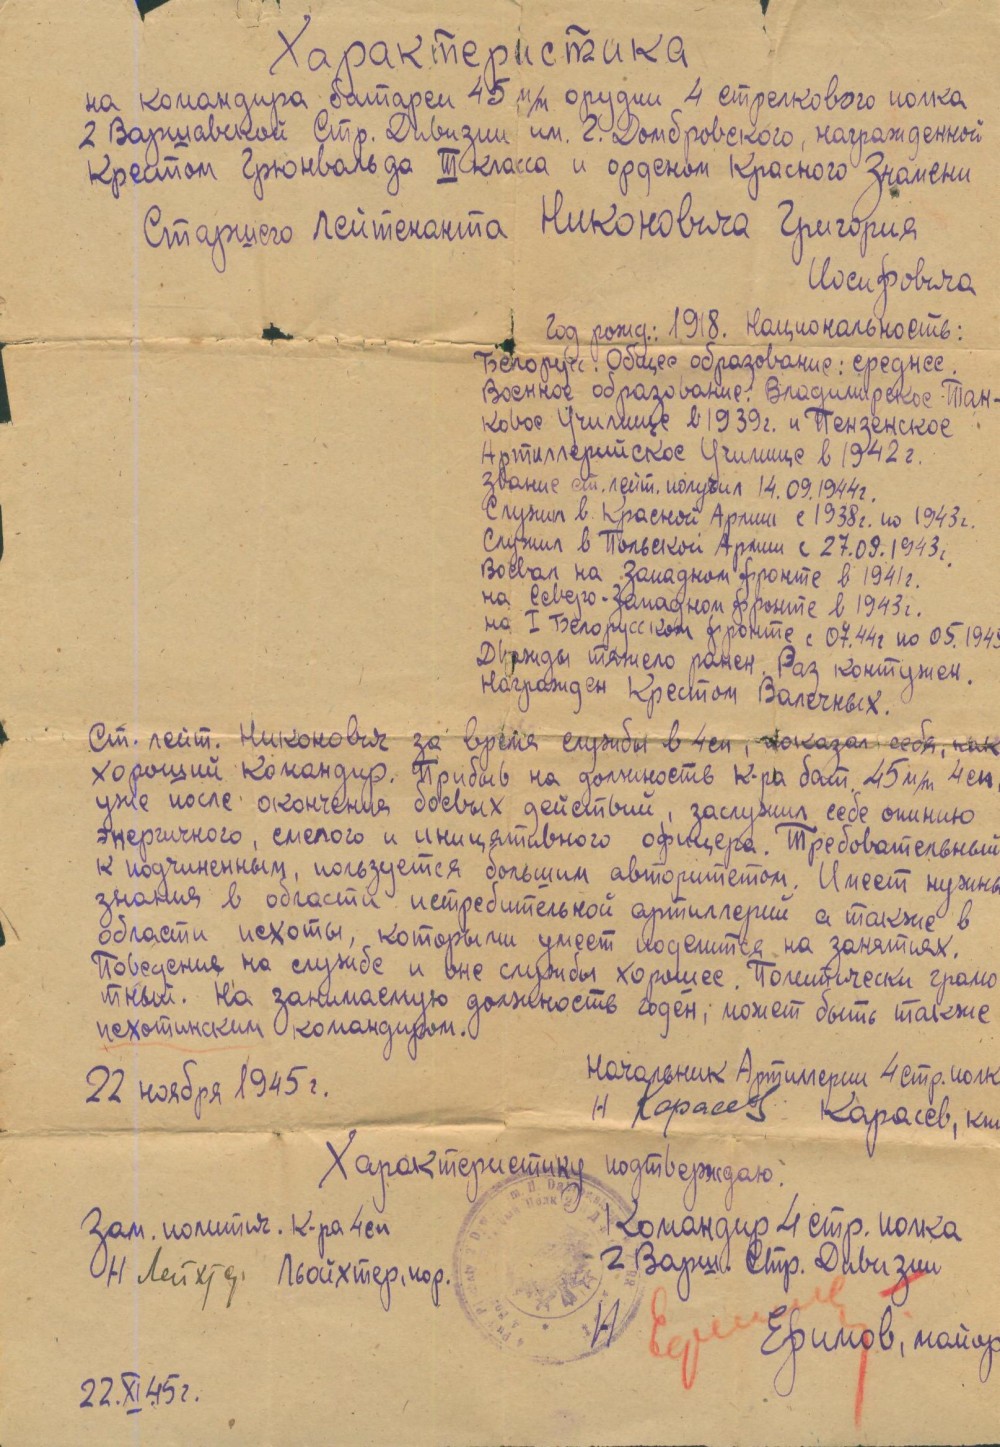 Характеристика
на командира батареи 45 м/м орудии 4 стрелкового полка
2 Варшавской Стр. Дивизии им. Г. Домбровского, награжденной
Крестом Грюнвальда III класса и орденом Красного Знамени
Старшего Лейтенанта Никоновича Григория
Иосифовича
Год рожд.: 1918. Национальность:
Белорусс. Общее образование: среднее.
Военное образование: Владимирское Тан-
ковое Училище в 1939г. и Пензенское
Артиллерийское Училище в 1942г.
Звание ст. лейт. получил 14.09.1944г.
Служил в Красной Армии с 1938г. по 1943г.
Служил в Польской Армии с 27.09.1943г.
Воевал на Западном фронте в 1941г.
на Северо-Западном фронте в 1943г.
на I Белорусском фронте с 07.44г по 05.1945
Дважды тяжело ранен. Раз контужен.
Награжден Крестом Валечных.
Ст. лейт. Никонович за время службы в 4сп, показал себя, как
хороший командир. Прибыв на должность к-ра бат. 45 м/м 4сп,
уже после окончения боевых действий, заслужил себе опинию
энергичного, смелого и иницятивного офицера. Требовательный
к подчиненным, пользуется большим авторитетом. Имеет нужны
знания в области истребительной артиллерий а также в
области пехоты, которыми умеет поделится на занятиях.
Поведения на службе и вне службы хорошее. Политически грамо
тный. На занимаемую должность годен, может быть также
пехотинским командиром.
22 ноября 1945г.
Начальник Артиллерии 4 стр. полк
Н Карасев Карасев, кап
Характеристику подтверждаю:
Зам. политич. к-ра 4сп
Командир 4 стр. полка
Н Льойхтер, пор.
2 Варш. Стр. Дивизии
Н Ефимов Ефимов, майор
22.XI.45г.